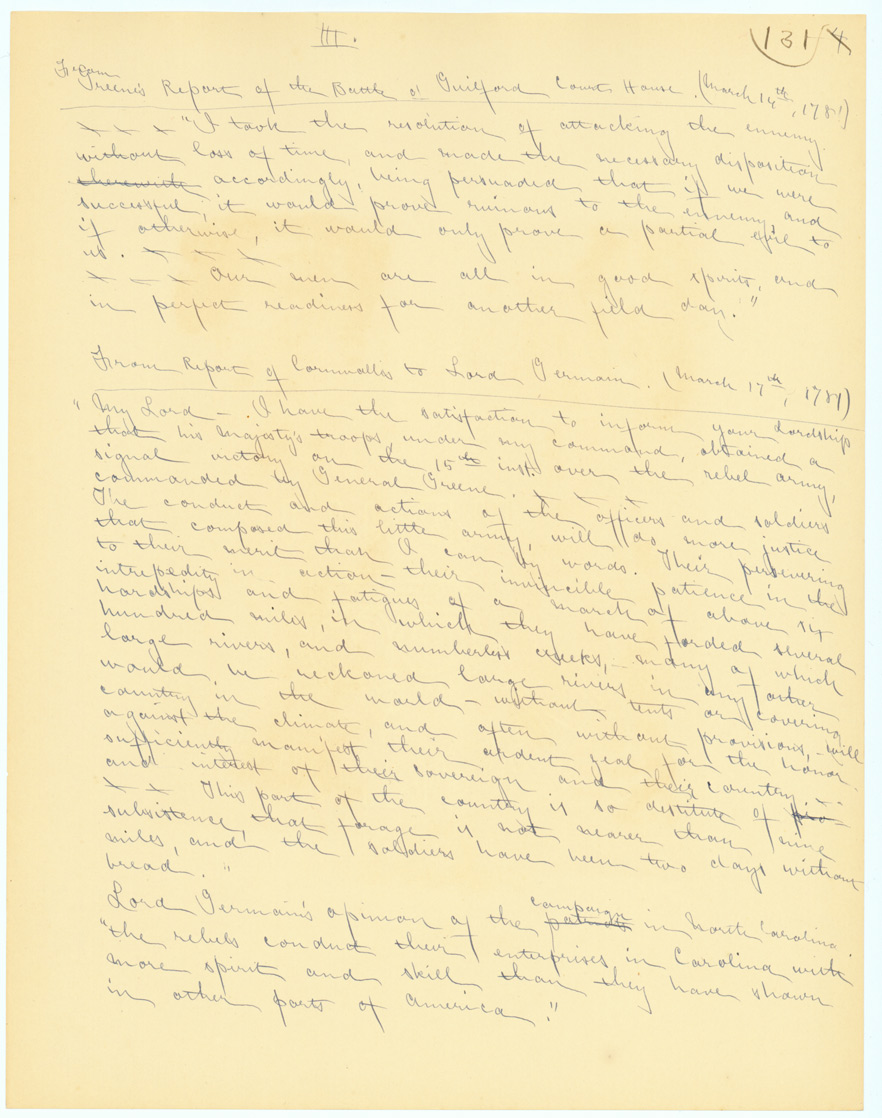 III.
(131) 4
From
Greene's Report of the Battle of Guilford Court House. (March 14th, 1781)
x x x "I took the resolution of attacking the ennemy
without loss of time, and made the necessary disposition
therewith accordingly, being persuaded that if we were
successful, it would prove ruinous to the ennemy, and
if otherwise, it would only prove a partial evil to
us. x x x
x x x Our men are all in good spirits, and
in perfect readiness for another field day."
From Report of Cornwallis to Lord Germain. (March 17th, 1781)
"My Lord – I have the satisfaction to inform your Lordship
that his Majesty's troops, under my command, obtained a
signal victory on the 15th inst. over the rebel army,
commanded by General Greene. x x x
The conduct and actions of the officers and soldiers
that composed this little army, will do more justice
to their merit than I can by words. Their persevering
intrepedity in action – their invincible patience in the
hardships and fatigues of a march of above six
hundred miles, in which they have forded several
large rivers, and numberless creeks, – many of which
would be reckoned large rivers in any other
country in the world – without tents or covering
against the climate, and often without provisions, – will
sufficiently manifest their ardent zeal for the honor
and interest of their sovereign and their country. x
x x This part of the country is so destitute of pro
subsistence, that forage is not nearer than nine
miles, and the soldiers have been two days without
bread."
Lord Germain's opinion of the campaign in North Carolina
"the rebels conduct their enterprises in Carolina with
more spirit and skill than they have shown
in other parts of America."